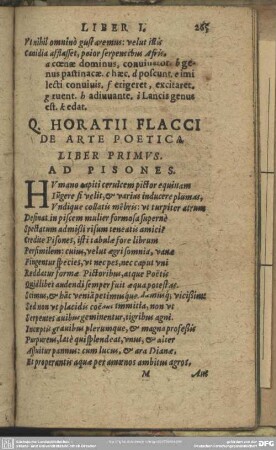 LIBER I. 265
Vt nihil omninò gustaremus: velut illis
Canidia afflasset, peior serpentibus Afris.
a cœnæ dominus, conuiuator. b ge
nus pastinacæ. c hæc. d poscunt. e imi
lecti conuiuis. f erigeret, excitaret.
g ruent. h adiuuante. i Lancis genus
est. k edat.
Q. HORATII FLACCI
DE ARTE POETICA
LIBER PRIMVS.
AD PISONES.
HVmano capiti ceruicem pictor equinam
Iũgere si velit, & varias inducere plumas,
Vndique collatis mẽbris: vt turpiter atrum
Desinat in piscem mulier formosa supernè
Spectatum admissi risum teneatis amici?
Credite Pisones, isti tabulæ fore librum
Persimilem: cuius, velut ægri somnia, vanæ
Fingentur species, vt nec pes, nec caput vni
Reddatur formæ. Pictoribus, atque Poëtis
Quidlibet audendi semper fuit æqua potestas.
Scimus, & hãc veniã petimusque damusq́; vicißim:
Sed non vt placidis coëant immitia, non vt
Serpentes auibus geminentur, tigribus agni.
Inceptis grauibus plerumque, & magna professis
Purpureus, latè qui splendeat, vnus, & alter
Assuitur pannus: cum lucus, & ara Dianæ,
Et properantis aquæ per amœnos ambitus agros,
M Aut